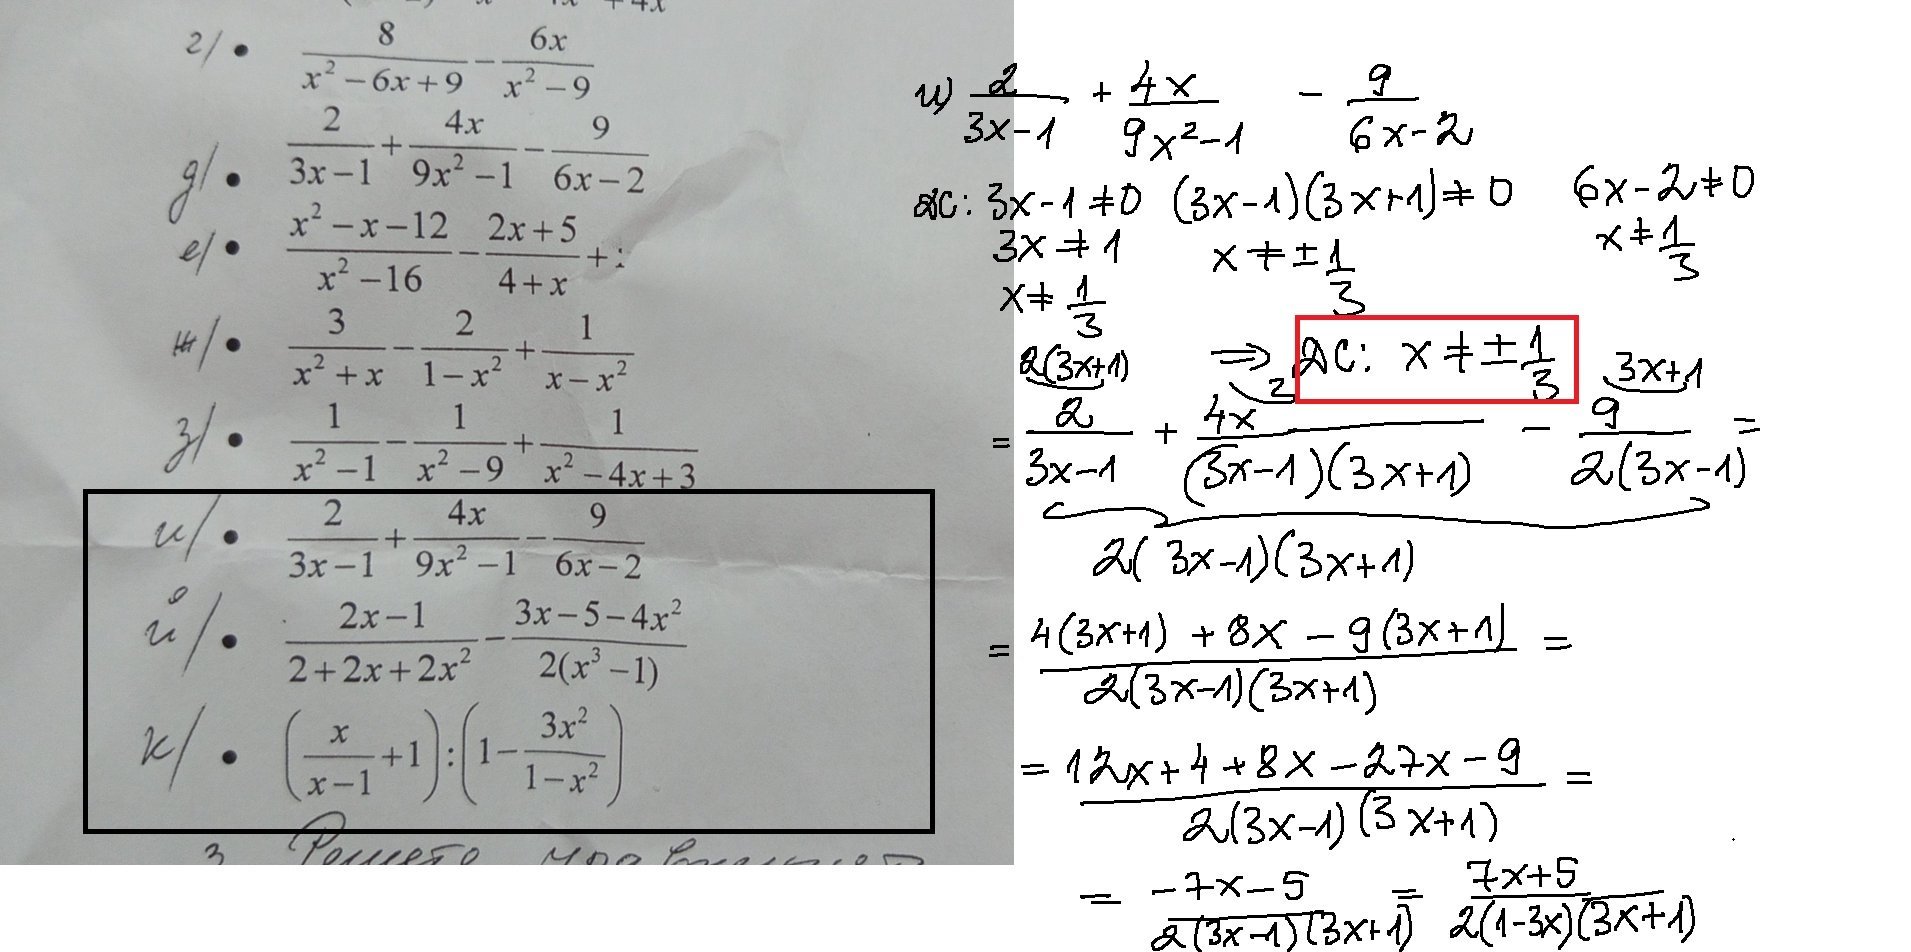 г/ • 8/(x² − 6x + 9) − 6x/(x² − 9)
д/ • 2/(3x − 1) + 4x/(9x² − 1) − 9/(6x − 2)
е/ • (x² − x − 12)/(x² − 16) − (2x + 5)/(4 + x) +
ж/ • 3/(x² + x) − 2/(1 − x²) + 1/(x − x²)
з/ • 1/(x² − 1) − 1/(x² − 9) + 1/(x² − 4x + 3)
и/ • 2/(3x − 1) + 4x/(9x² − 1) − 9/(6x − 2)
й/ • (2x − 1)/(2 + 2x + 2x²) − (3x − 5 − 4x²)/(2(x³ − 1))
к/ • (x/(x − 1) + 1) : (1 − 3x²/(1 − x²))
3. Решете
и) 2/(3x−1) + 4x/(9x²−1) − 9/(6x−2)
ДС: 3x−1≠0 (3x−1)(3x+1)≠0 6x−2≠0
3x≠1 x≠±1/3 x≠1/3
x≠1/3
⇒ ДС: x≠±1/3
2(3x+1) 2 3x+1
= 2/(3x−1) + 4x/((3x−1)(3x+1)) − 9/(2(3x−1)) =
2(3x−1)(3x+1)
= (4(3x+1) + 8x − 9(3x+1))/(2(3x−1)(3x+1)) =
= (12x+4+8x−27x−9)/(2(3x−1)(3x+1)) =
= (−7x−5)/(2(3x−1)(3x+1)) = (7x+5)/(2(1−3x)(3x+1))